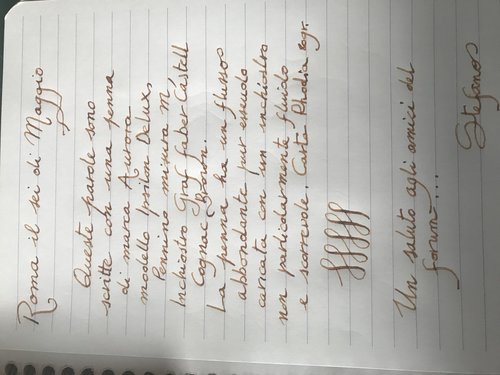 Roma il sei di Maggio
Queste parole sono
scritte con una penna
di marca Aurora
modello Ipsilon Delux,
Pennino misura M,
Inchiostro Graf faber Castell
Cognac Brown.
La penna ha un flusso
abbondante pur essendo
caricata con un inchiostro
non particolarmente fluido
e scorrevole. Carta Rhodia 80gr.
Un saluto agli amici del
forum...
Stefano